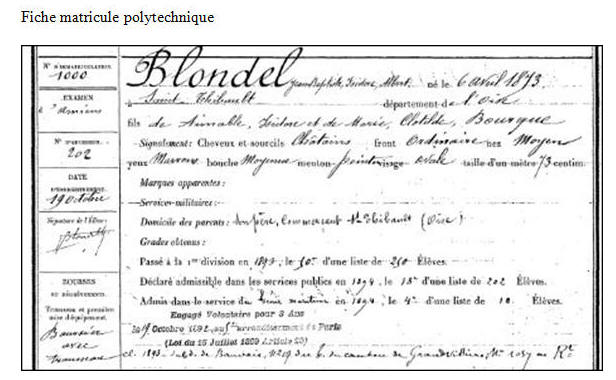 Fiche matricule polytechnique
N° D'IMMATRICULATION
1000
EXAMEN
d'Amiens
202
DATE
19 Octobre
Signature de l'Élève:
BOURSES
Trousseau et première
mise d'équipement.
Boursier
avec
trousseau
Blondel Jean Baptiste, Isidore, Albert né le 6 avril 1873
à Saint Thibault département de l'Oise
fils de Aimable, Isidore et de Marie, Clotilde, Bourque
Signalement: Cheveux et sourcils Châtains front Ordinaire nez Moyen
yeux Marrons bouche Moyenne menton pointu visage ovale taille d'un mètre 73 centim.
Marques apparentes:
Services militaires:
Domicile des parents: son père, Commerçant St Thibault (Oise)
Grades obtenus:
Passé à la 1re division en 1893, le 50e d'une liste de 250 Élèves.
Déclaré admissible dans les services publics en 1894, le 15e d'une liste de 202 Élèves.
Admis dans le service du Génie maritime en 1894, le 4e d'une liste de 10 Élèves.
Engagé Volontaire pour 3 Ans
le 19 Octobre 1892, au 5e arrondissement de Paris
(Loi du 15 Juillet 1889 Article 23)
cl. 1893 de Beauvais, N° 29 du canton de Grandvilliers, Mle